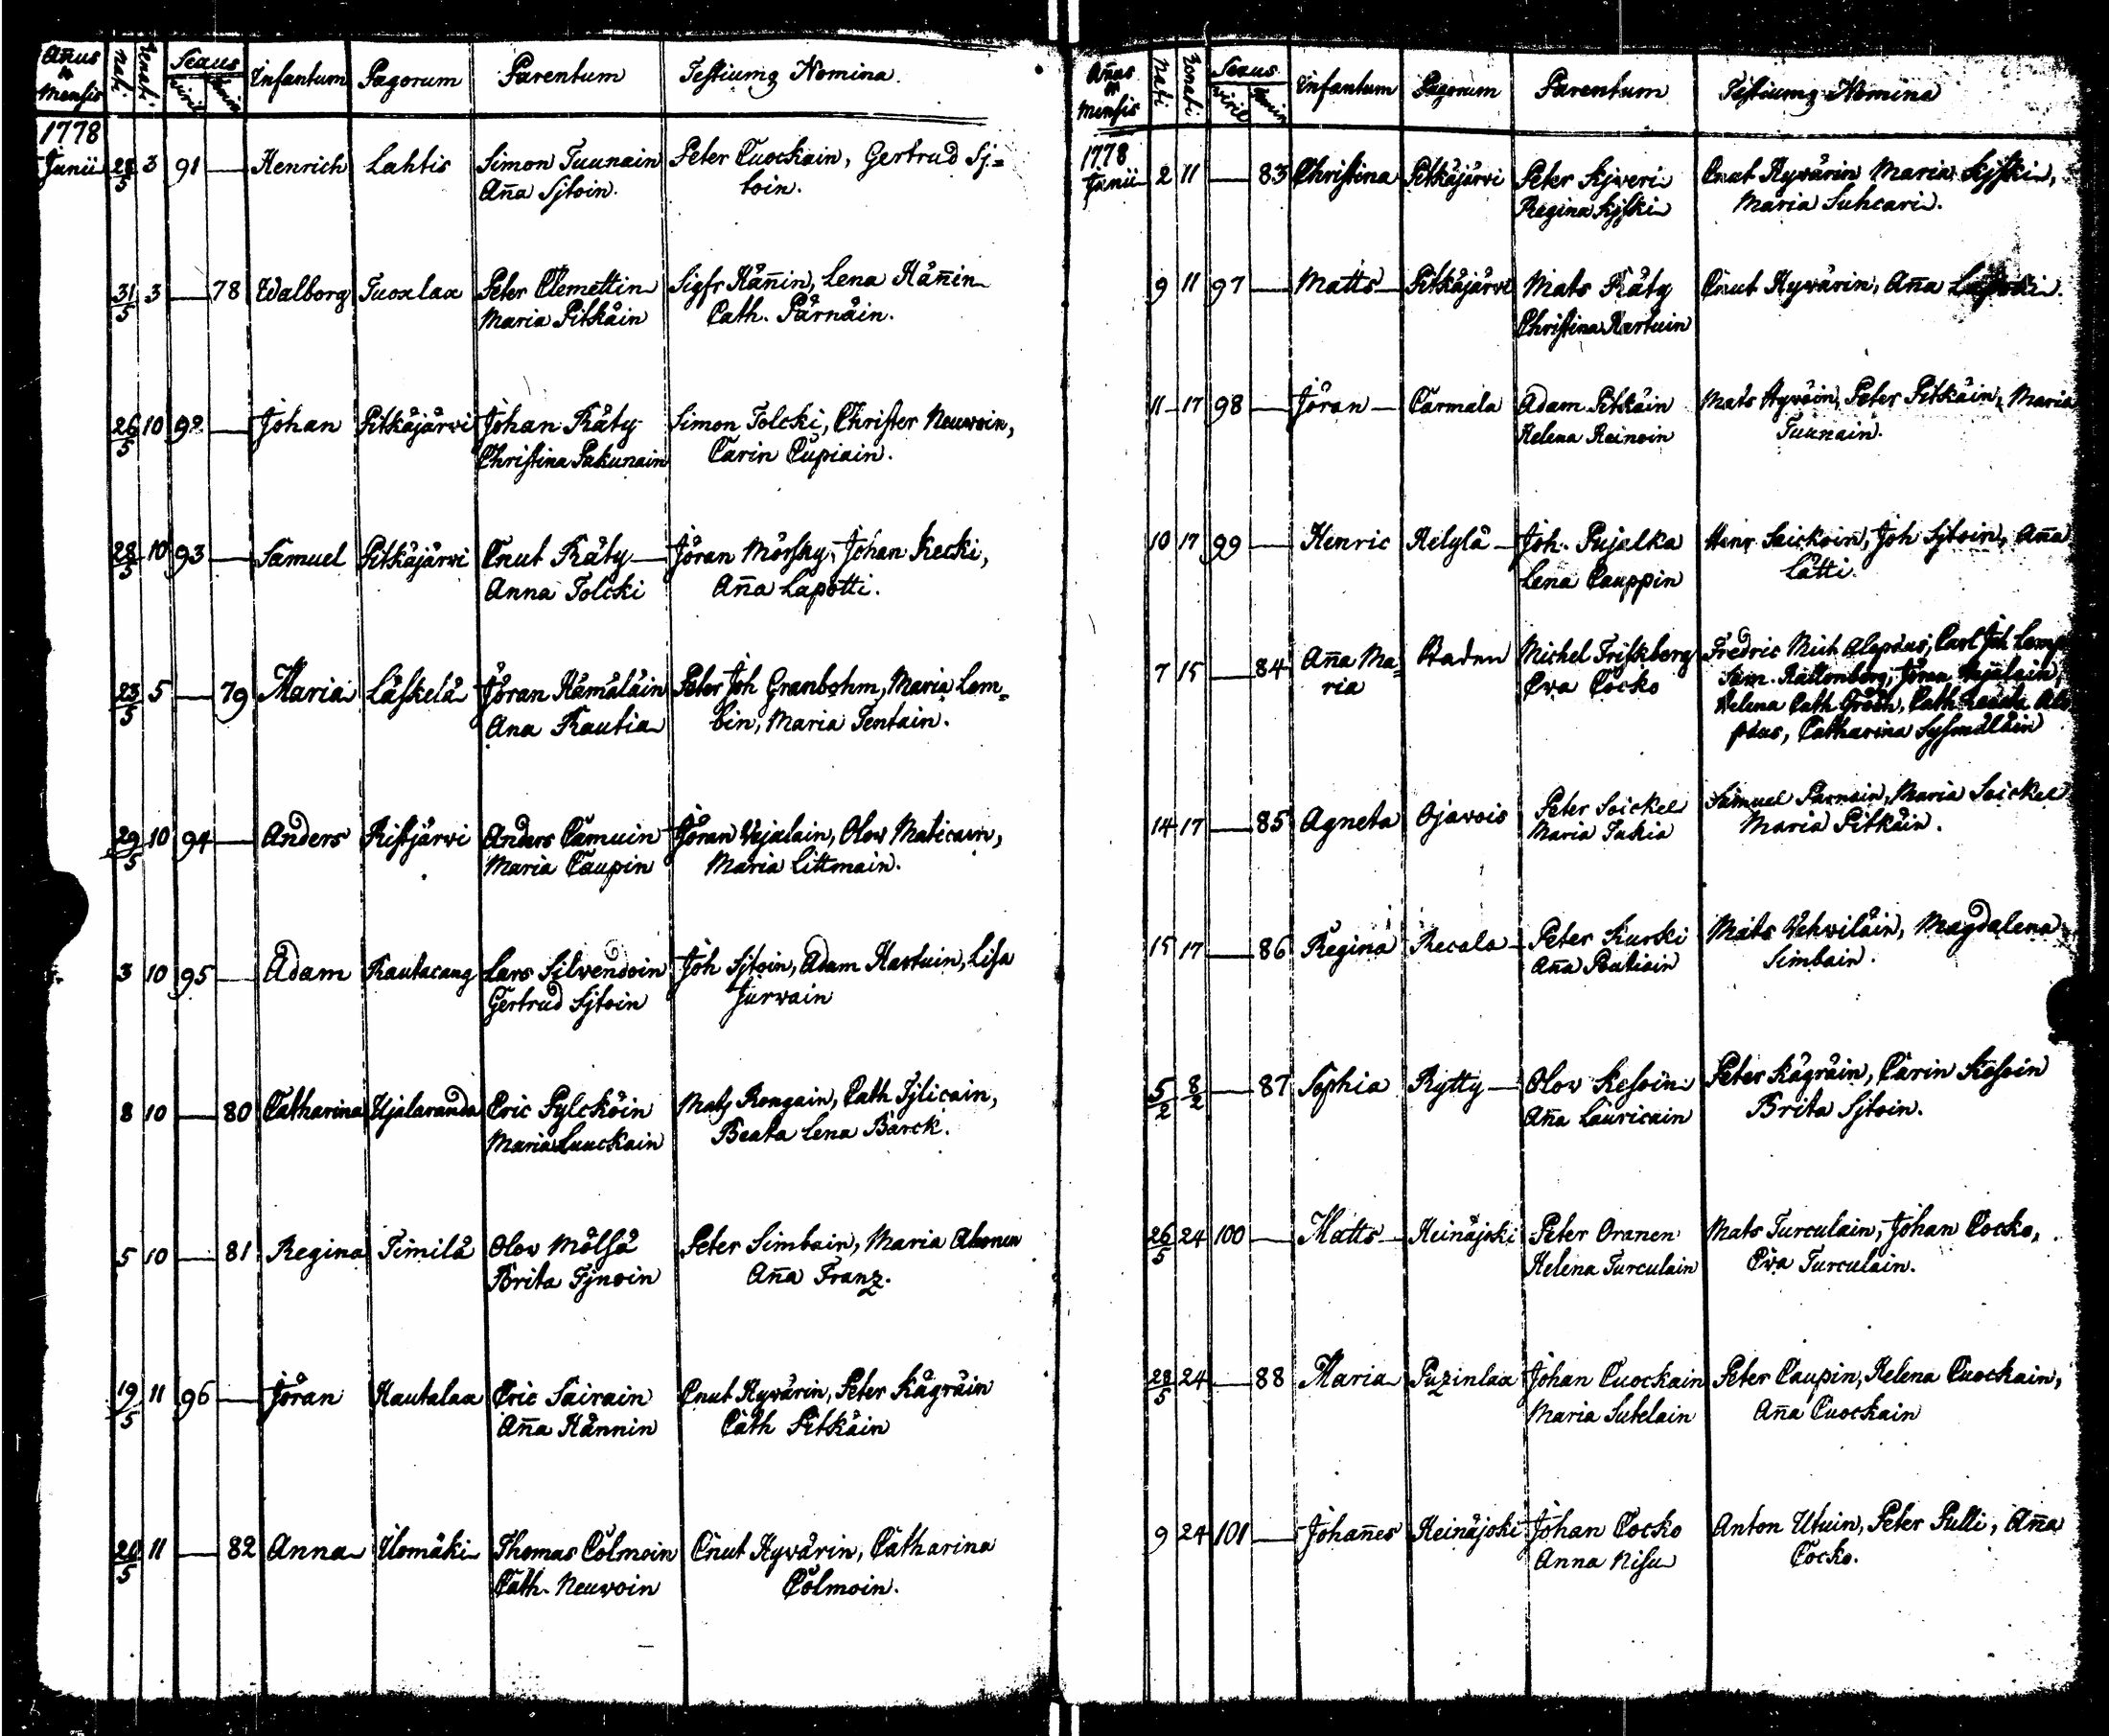 Añus & Mensis Nati Renati Sexus Infantum Pagorum Parentum Testiumq Nomina.
viril femin
1778
Junii 28/5 3 91 — Henrich Lahtis Simon Tuunain Peter Cuockain, Gertrud Sj=
Aña Sjtoin. toin.
31/5 3 — 78 Walborg Tuoxlax Peter Clemettin Sigfr Häñin, Lena Häñin
Maria Pitkäin Cath. Pärnäin.
26/5 10 92 — Johan Pitkäjärvi Johan Räty Simon Tolcki, Christer Neuvoin,
Christina Pakunain Carin Cupiain.
28/5 10 93 — Samuel Pitkäjärvi Cnut Räty Jöran Mörsky, Johan Kecki,
Anna Tolcki Aña Lapotti.
23/5 5 — 79 Maria Läskelä Jöran Hämäläin Peter Joh Granbohm, Maria Lem=
Ana Rautia bin, Maria Pentain.
29/5 10 94 — Anders Ristjärvi Anders Camuin Jöran Vejalain, Olov Maticain,
Maria Caupin Maria Littmain.
3 10 95 — Adam Rautacang Lars Silvendoin Joh Sjtoin, Adam Hartuin, Lisa
Gertrud Sjtoin Jurvain
8 10 — 80 Catharina Hjalaranda Eric Pylcköin Mats Rongain, Cath Tjlicain,
Maria Luuckain Beata Lena Barck.
5 10 — 81 Regina Timilä Olov Mölsä Peter Simbain, Maria Ahonen
Brita Tjnoin Aña Franz.
19/5 11 96 — Jöran Hautalax Eric Sairain Cnut Hyvärin, Peter Kägräin
Aña Hännin Cath Pitkäin
20/5 11 — 82 Anna Ilomäki Thomas Colmoin Cnut Hyvärin, Catharina
Cath. Neuvoin Colmoin.
Añus & Mensis Nati Renati Sexus Infantum Pagorum Parentum Testiumq Nomina
viril femin
1778
Junii 2 11 — 83 Christina Pitkäjärvi Peter Kjveri Cnut Hyvärin Maria Kyski,
Regina Kyski Maria Suhcari.
9 11 97 — Matts Pitkäjärvi Mats Räty Cnut Hyvärin, Aña
Christina Hartuin
11 17 98 — Jöran Carmala Adam Pitkäin Mats Hyvöin, Peter Pitkäin, Maria
Helena Reinoin Tuunain.
10 17 99 — Henric Helylä Joh. Pujalka Henr Saickoin, Joh Sjtoin, Aña
Lena Cauppin Lätti.
7 15 — 84 Aña Ma= Staden Michel Friskberg Fredric Mich Alopæus, Carl Joh
ria Eva Cocko Sam. Kallonberg, Jöran
Helena Cath Gröön, Cath Renata Alo
pæus, Catharina Sysmäläin
14 17 — 85 Agneta Ojavois Peter Soickel Samuel Parnain, Maria Soickel
Maria Juhia Maria Pitkäin.
15 17 — 86 Regina Recala Peter Kurki Mats Vehviläin, Magdalena
Aña Poutiain Simbain.
5/2 8/2 — 87 Sophia Rytty Olov Kesoin Peter Kägräin, Carin Kesoin
Aña Lauricain Brita Sjtoin.
26/5 24 100 — Matts Heinäjoki Peter Oranen Mats Turculain, Johan Cocko,
Helena Turculain Eva Turculain.
28/5 24 — 88 Maria Puzinlax Johan Cuockain Peter Caupin, Helena Cuockain,
Maria Sutelain Aña Cuockain
9 24 101 — Johañes Heinäjoki Johan Cocko Anton Utuin, Peter Pulli, Aña
Anna Nisu Cocko.